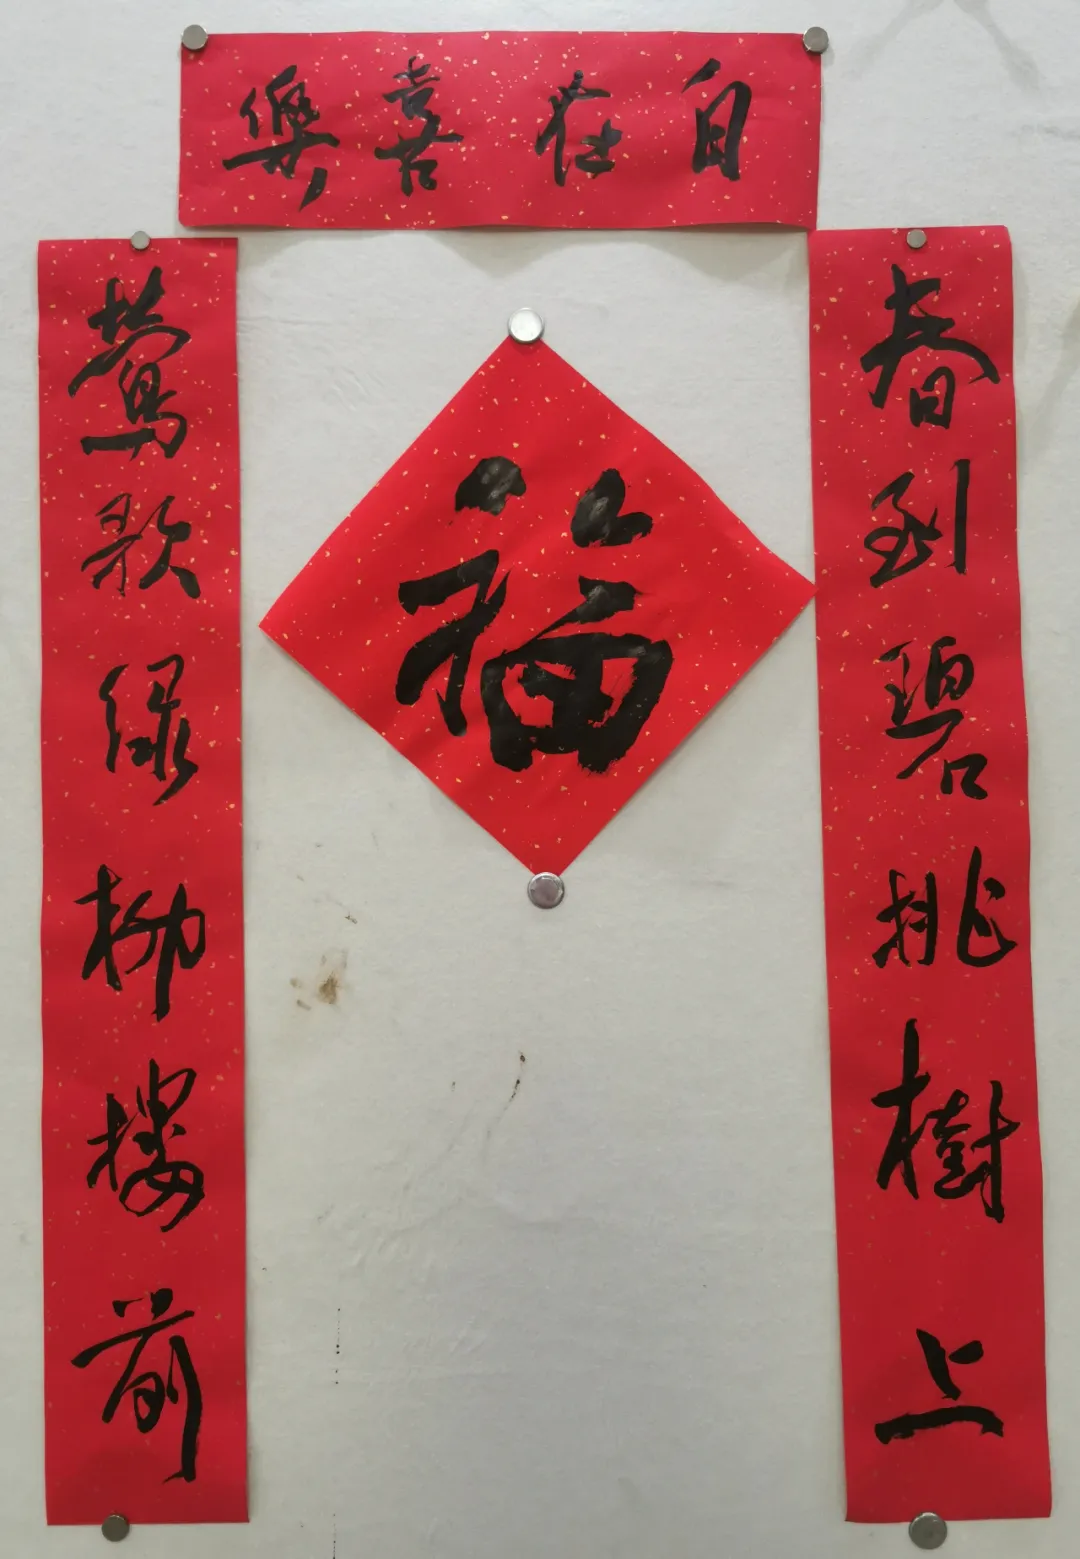 自在喜樂
春到碧桃樹上
莺歌绿柳楼前
福